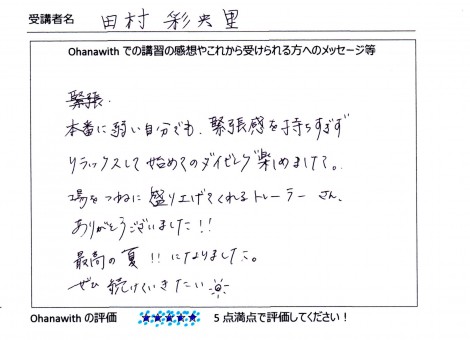 受講者名 田村 彩央里
Ohanawith での講習の感想やこれから受けられる方へのメッセージ等
緊張.
本番に弱い自分でも、緊張感を持ちすぎず
リラックスして始めてのダイビング楽しめました。
場をつねに盛り上げてくれるトレーラーさん、
ありがとうございました!!
最高の夏!!になりました。
ぜひ続けていきたい
Ohanawith の評価 ★★★★★ 5 点満点で評価してください!